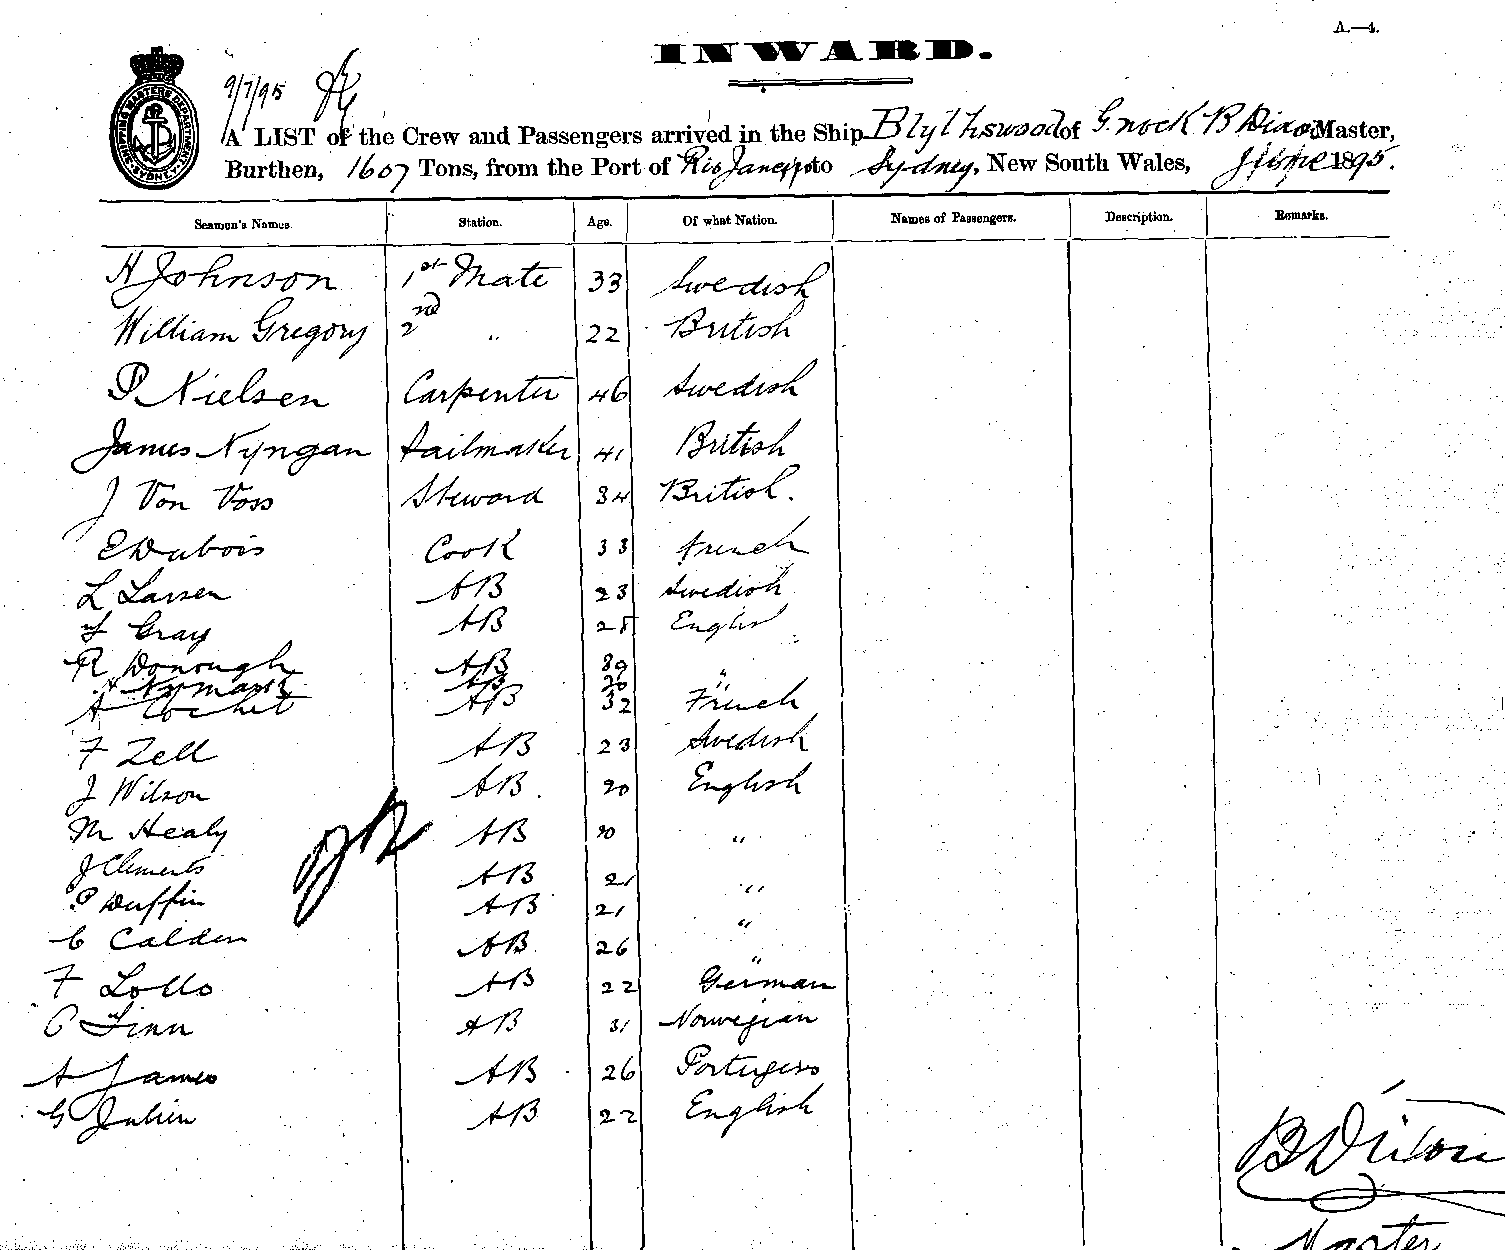 A.—4.
INWARD.
9/7/95
A LIST of the Crew and Passengers arrived in the Ship Blythswood of G.nock B Dixon Master,
Burthen, 1607 Tons, from the Port of Rio Janeiro to Sydney, New South Wales, 1895.
Seamen's Names. Station. Age. Of what Nation. Names of Passengers. Description. Remarks.
H Johnson 1st Mate 33 Swedish
William Gregory 2nd " 22 British
P Nielsen Carpenter 46 Swedish
James Nyngan Sailmaker 41 British
J Von Voss Steward 34 British.
E Dubois Cook 33 French
L Larsen AB 23 Swedish
Gray AB English
R Donough AB "
AB
A Cochet AB 32 French
F Zell AB 23 Swedish
J Wilson AB. 20 English
M Healy AB "
J Clements AB 21 "
P Duffin AB 21 "
C Calden AB 26 "
F Lollo AB 22 German
Finn AB 31 Norwegian
A James AB 26
G Julien AB 22 English
B Dixon
Master